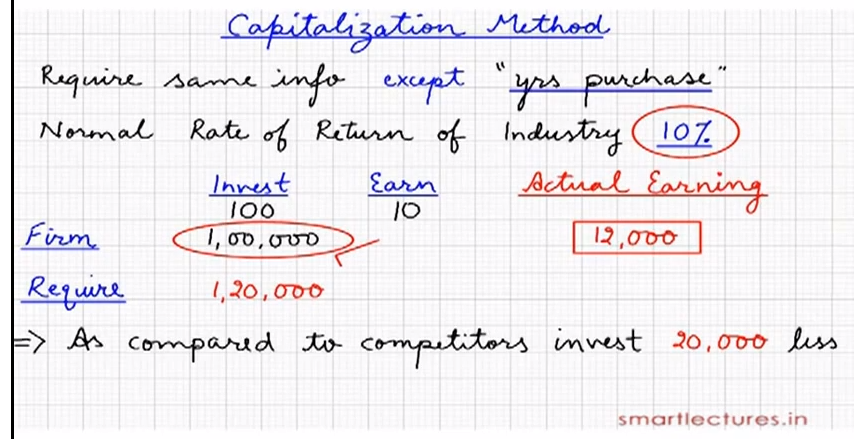 Capitalization Method
Require same info except "yrs purchase"
Normal Rate of Return of Industry 10%
Invest Earn Actual Earning
100 10
Firm 1,00,000 12,000
Require 1,20,000
=> As compared to competitors invest 20,000 less
smartlectures.in